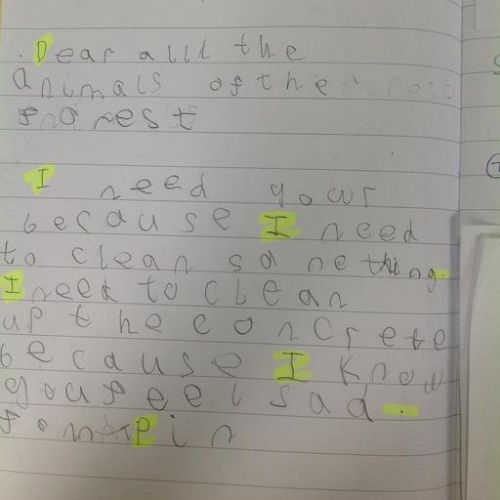 Dear alll the
animals of the
fnorest
I need your
because I need
to clean so me thing.
I need to clean
up the concrete
because I know
you feel sad.
from Pip